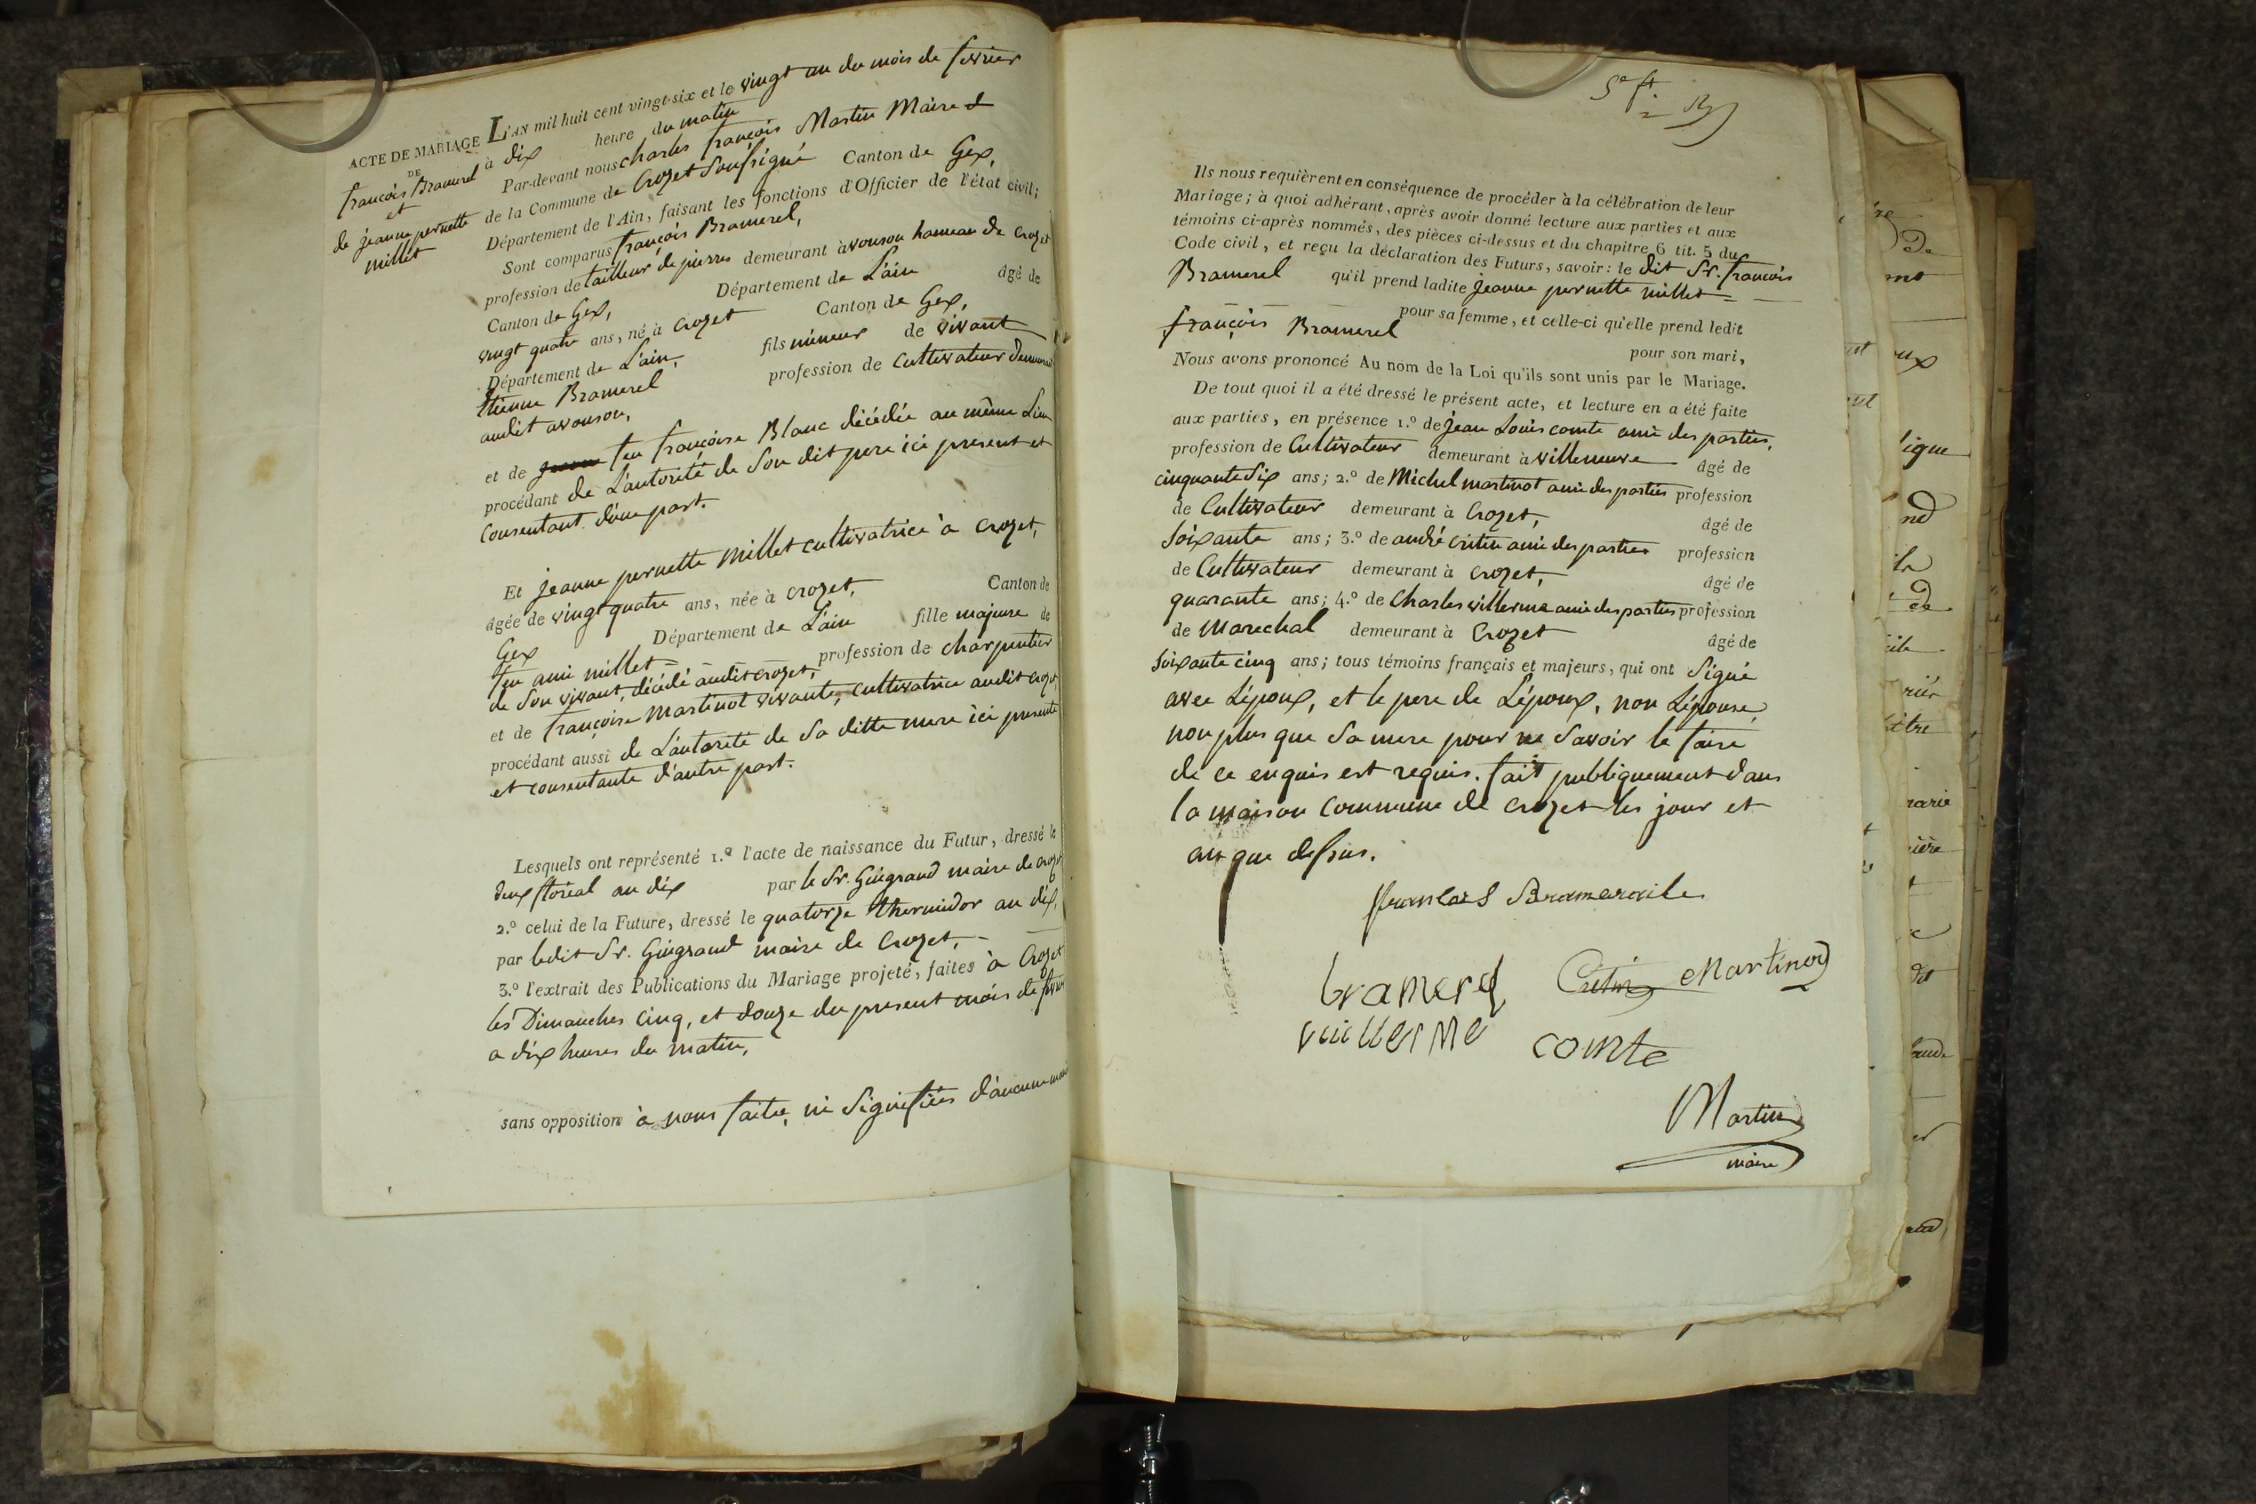 ACTE DE MARIAGE
DE
françois Bramerel
et
de jeanne pernette
millet
L'AN mil huit cent vingt-six et le vingt un du mois de fevrier
à dix heure du matin
Par-devant nous charles françois Martin Maire
de la Commune de Crozet Soussigné Canton de Gex,
Département de l'Ain, faisant les fonctions d'Officier de l'état civil;
Sont comparus françois Bramerel,
profession de tailleur de pierres demeurant à avouson hameau de Crozet
Canton de Gex, Département de L'ain âgé de
vingt quatre ans, né à Crozet Canton de Gex,
Département de L'ain, fils mineur de vivant
Etienne Bramerel profession de Cultivateur demeurant
audit avouson,
et de feu françoise Blanc décédée au même Lieu
procédant de L'autorité de Son dit pere ici present et
Consentant d'une part.
Et jeanne pernette Millet cultivatrice à Crozet,
âgée de vingt quatre ans, née à Crozet, Canton de
Gex Département de L'ain fille majeure de
feu ami millet profession de charpentier
de Son vivant, décédé audit crozet,
et de françoise Martinot vivante, cultivatrice audit crozet,
procédant aussi de L'autorité de Sa ditte mere ici presente
et consentante d'autre part.
Lesquels ont représenté 1.º l'acte de naissance du Futur, dressé le
deux floréal an dix par le Sr. Girgrand maire de crozet
2.º celui de la Future, dressé le quatorze thermidor an dix,
par ledit Sr. Girgrand maire de Crozet,
3.º l'extrait des Publications du Mariage projeté, faites à Crozet
les Dimanches Cinq, et douze du present mois de fevrier
a dix heures du matin,
sans opposition à nous faite, ni Signifiées d'aucune
Ils nous requièrent en conséquence de procéder à la célébration de leur
Mariage; à quoi adhérant, après avoir donné lecture aux parties et aux
témoins ci-après nommés, des pièces ci-dessus et du chapitre 6 tit. 5 du
Code civil, et reçu la déclaration des Futurs, savoir: le dit Sr. françois
Bramerel qu'il prend ladite jeanne pernette millet
pour sa femme, et celle-ci qu'elle prend ledit
françois Bramerel
pour son mari,
Nous avons prononcé Au nom de la Loi qu'ils sont unis par le Mariage.
De tout quoi il a été dressé le présent acte, et lecture en a été faite
aux parties, en présence 1.º de jean Louis comte ami des parties,
profession de Cultivateur demeurant à villeneuve âgé de
cinquante Six ans; 2.º de Michel martinot ami des parties profession
de Cultivateur demeurant à Crozet, âgé de
Soixante ans; 3.º de andré critin ami des parties profession
de Cultivateur demeurant à crozet, âgé de
quarante ans; 4.º de Charles villerme ami des parties profession
de Marechal demeurant à Crozet âgé de
Soixante cinq ans; tous témoins français et majeurs, qui ont Signé
avec L'époux, et le pere de L'époux, non L'épouse,
non plus que Sa mere pour ne Savoir le faire
de ce enquis est requis. fait publiquement dans
la maison Commune de Crozet les jour et
an que dessus.
francois Bramerel
bramerel
Critin
Martinod
vuillerme
comte
Martin
maire